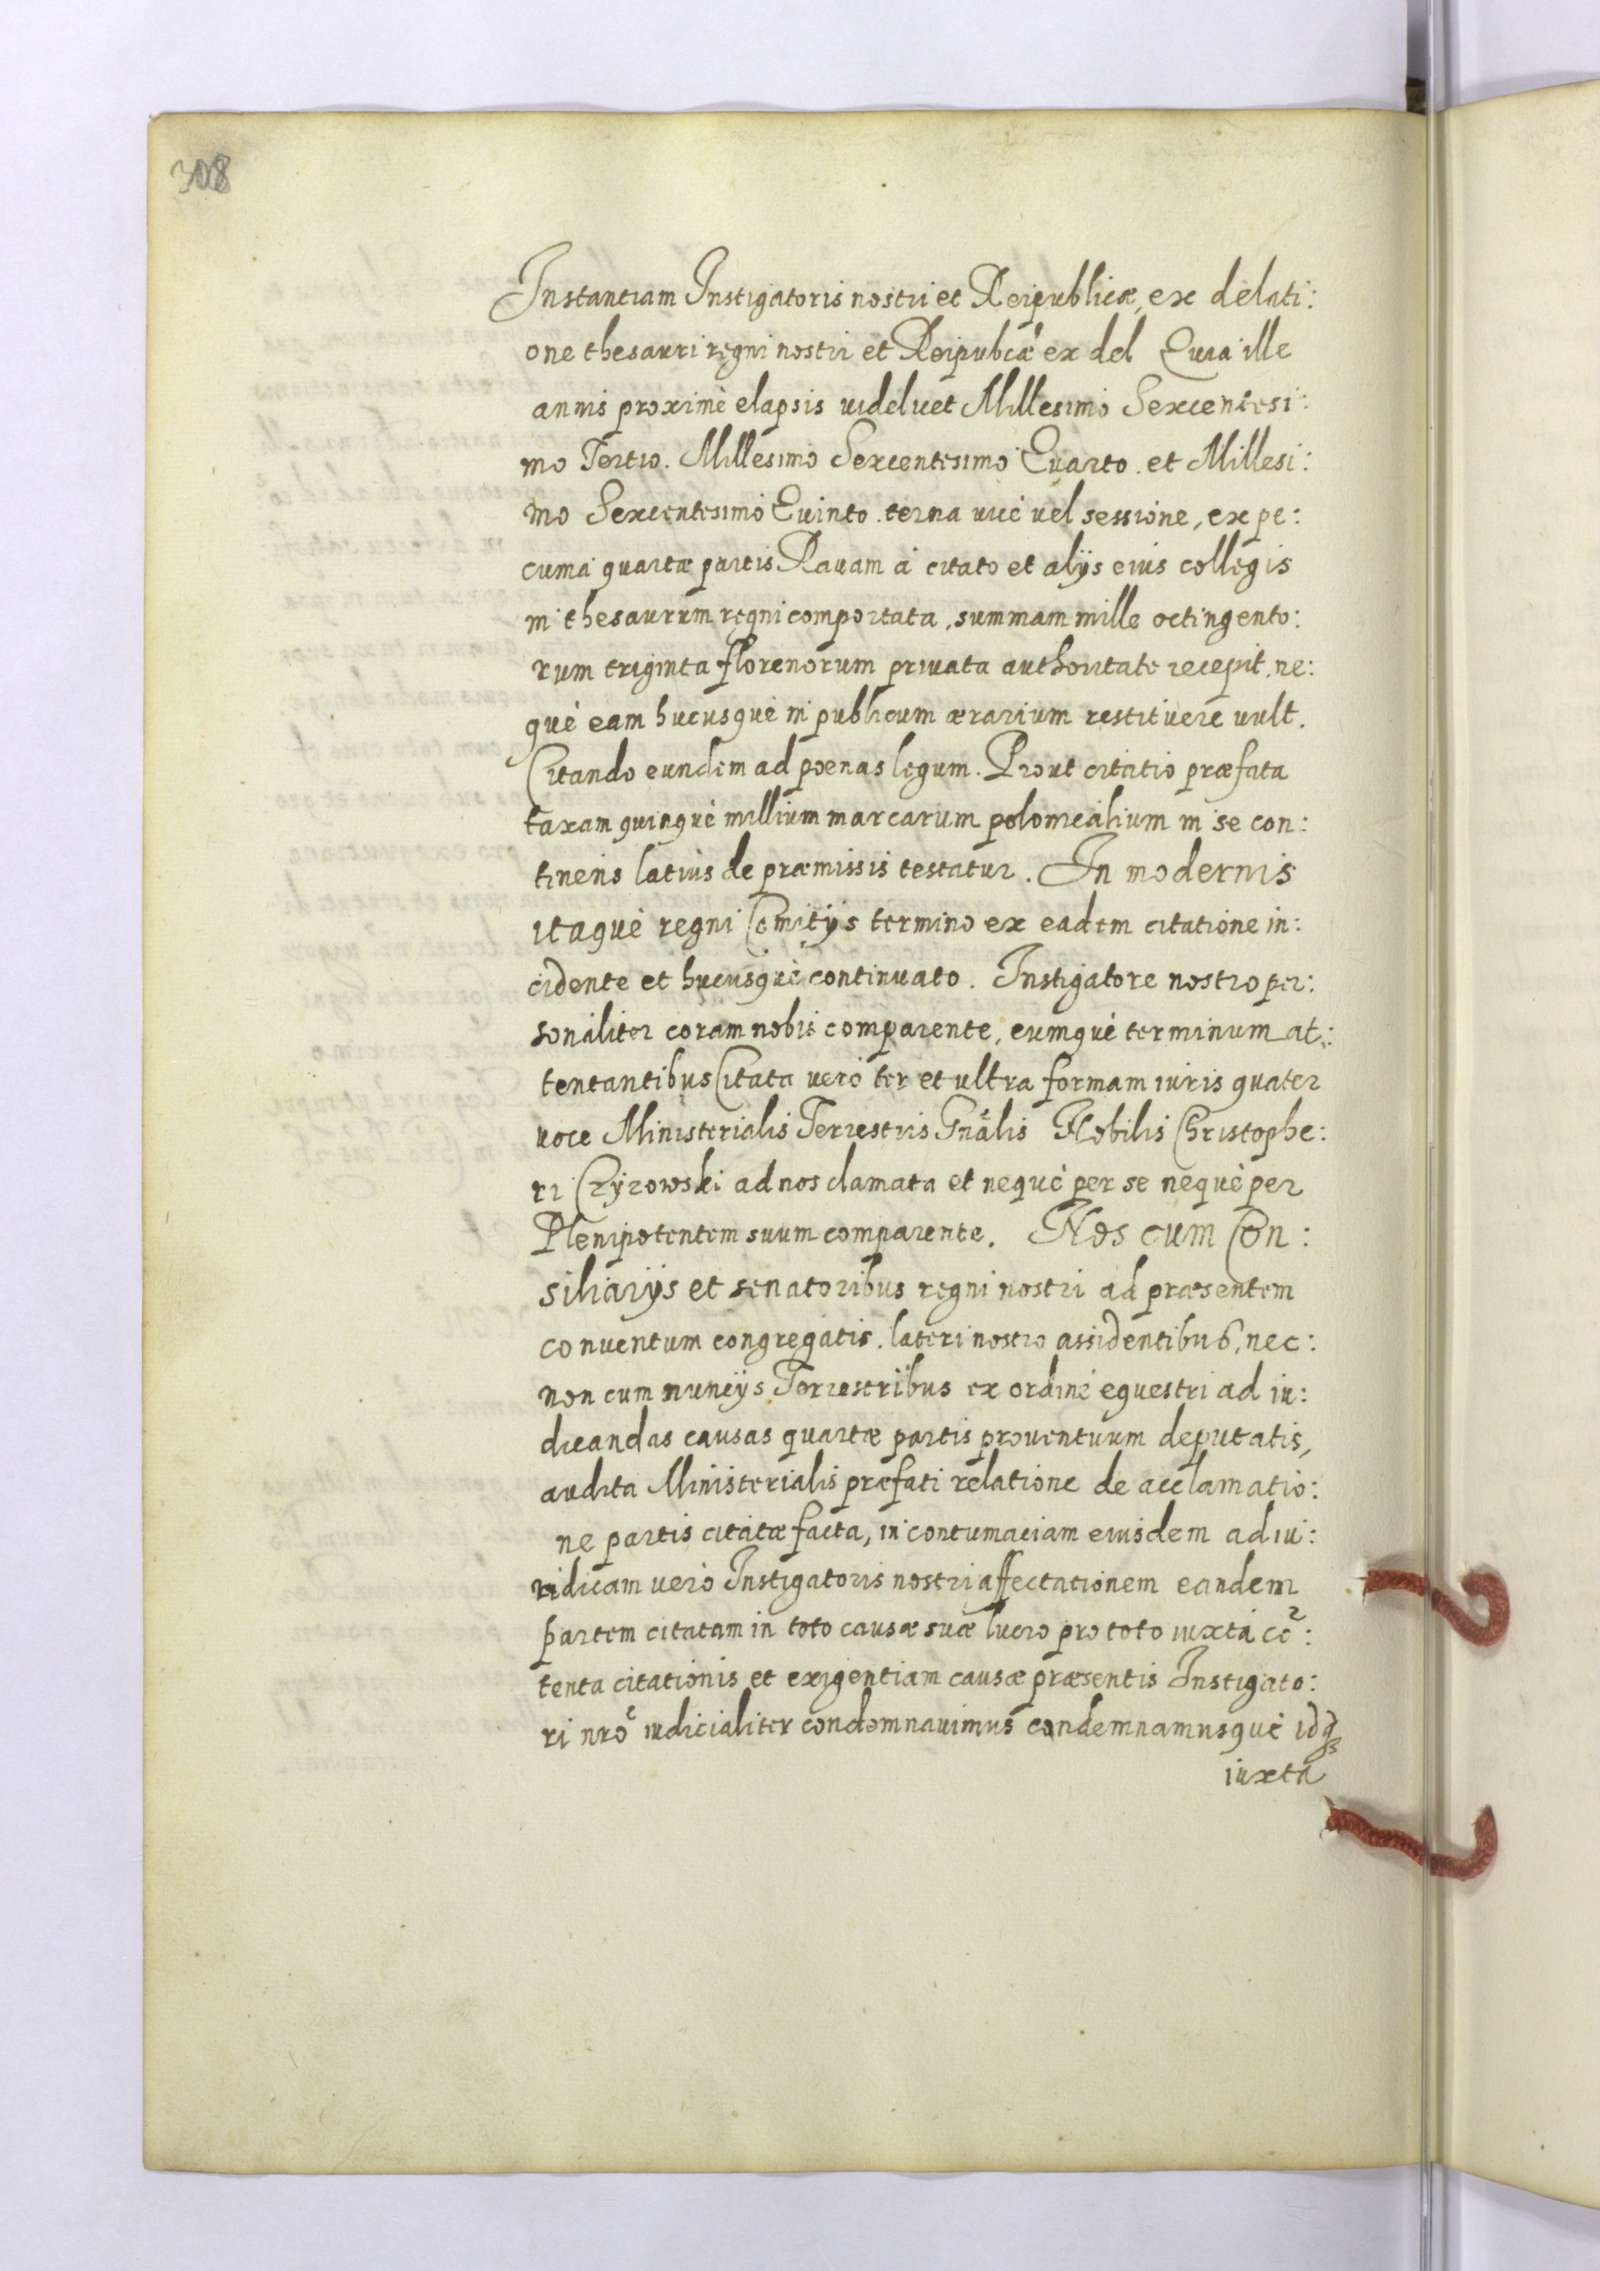 308
Instantiam Instigatoris nostri et Reipublicæ, ex delati:
one thesauri regni nostri et Reipubcæ ex del Quia ille
annis proximè elapsis videlicet Millesimo Sexcentesi:
mo Tertio. Millesimo Sexcentesimo Quarto. et Millesi:
mo Sexcentesimo Quinto. terna vice vel sessione, ex pe:
cunia quartæ partis Ravam à citato et alijs eius collegis
in thesaurum regni comportata, summam mille octingento:
rum triginta florenorum privata authoritate recepit. ne:
què eam hucusquè in publicum ærarium restituere vult.
Citando eundem ad poenas legum. Prout citatio præfata
taxam quinquè millium marcarum polonicalium in se con:
tinens latius de præmissis testatur. In modernis
itaquè regni Comitijs termino ex eadem citatione in:
cidente et hucusquè continuato. Instigatore nostro per:
sonaliter coram nobis comparente, eumquè terminum at:
tentantibus Citata verò ter et ultra formam iuris quater
voce Ministerialis Terrestris Gnãlis Nobilis Christophe:
ri Czyzowski ad nos clamata et nequè per se nequè per
Plenipotentem suum comparente. Nos cum Con:
siliarijs et senatoribus regni nostri ad præsentem
conventum congregatis. lateri nostro assidentibus, nec:
non cum nuncijs Terrestribus ex ordine equestri ad iu:
dicandas causas quartæ partis proventuum deputatis,
audita Ministerialis præfati relatione de acclamatio:
ne partis citatæ facta, in contumaciam eiusdem ad iu:
ridicam verò Instigatoris nostri affectationem eandem
partem citatam in toto causæ suæ lucro pro toto iuxta cõ:
tenta citationis et exigentiam causæ præsentis Instigato:
ri nrõ iudicialiter condemnavimus condemnamusquè idq
iuxta